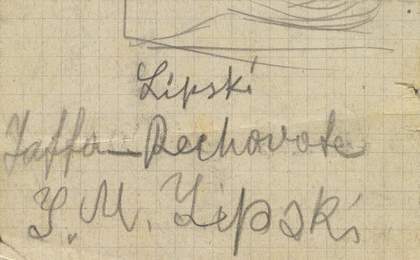 Lipski
Jaffa—Rechovote
J. M. Lipski